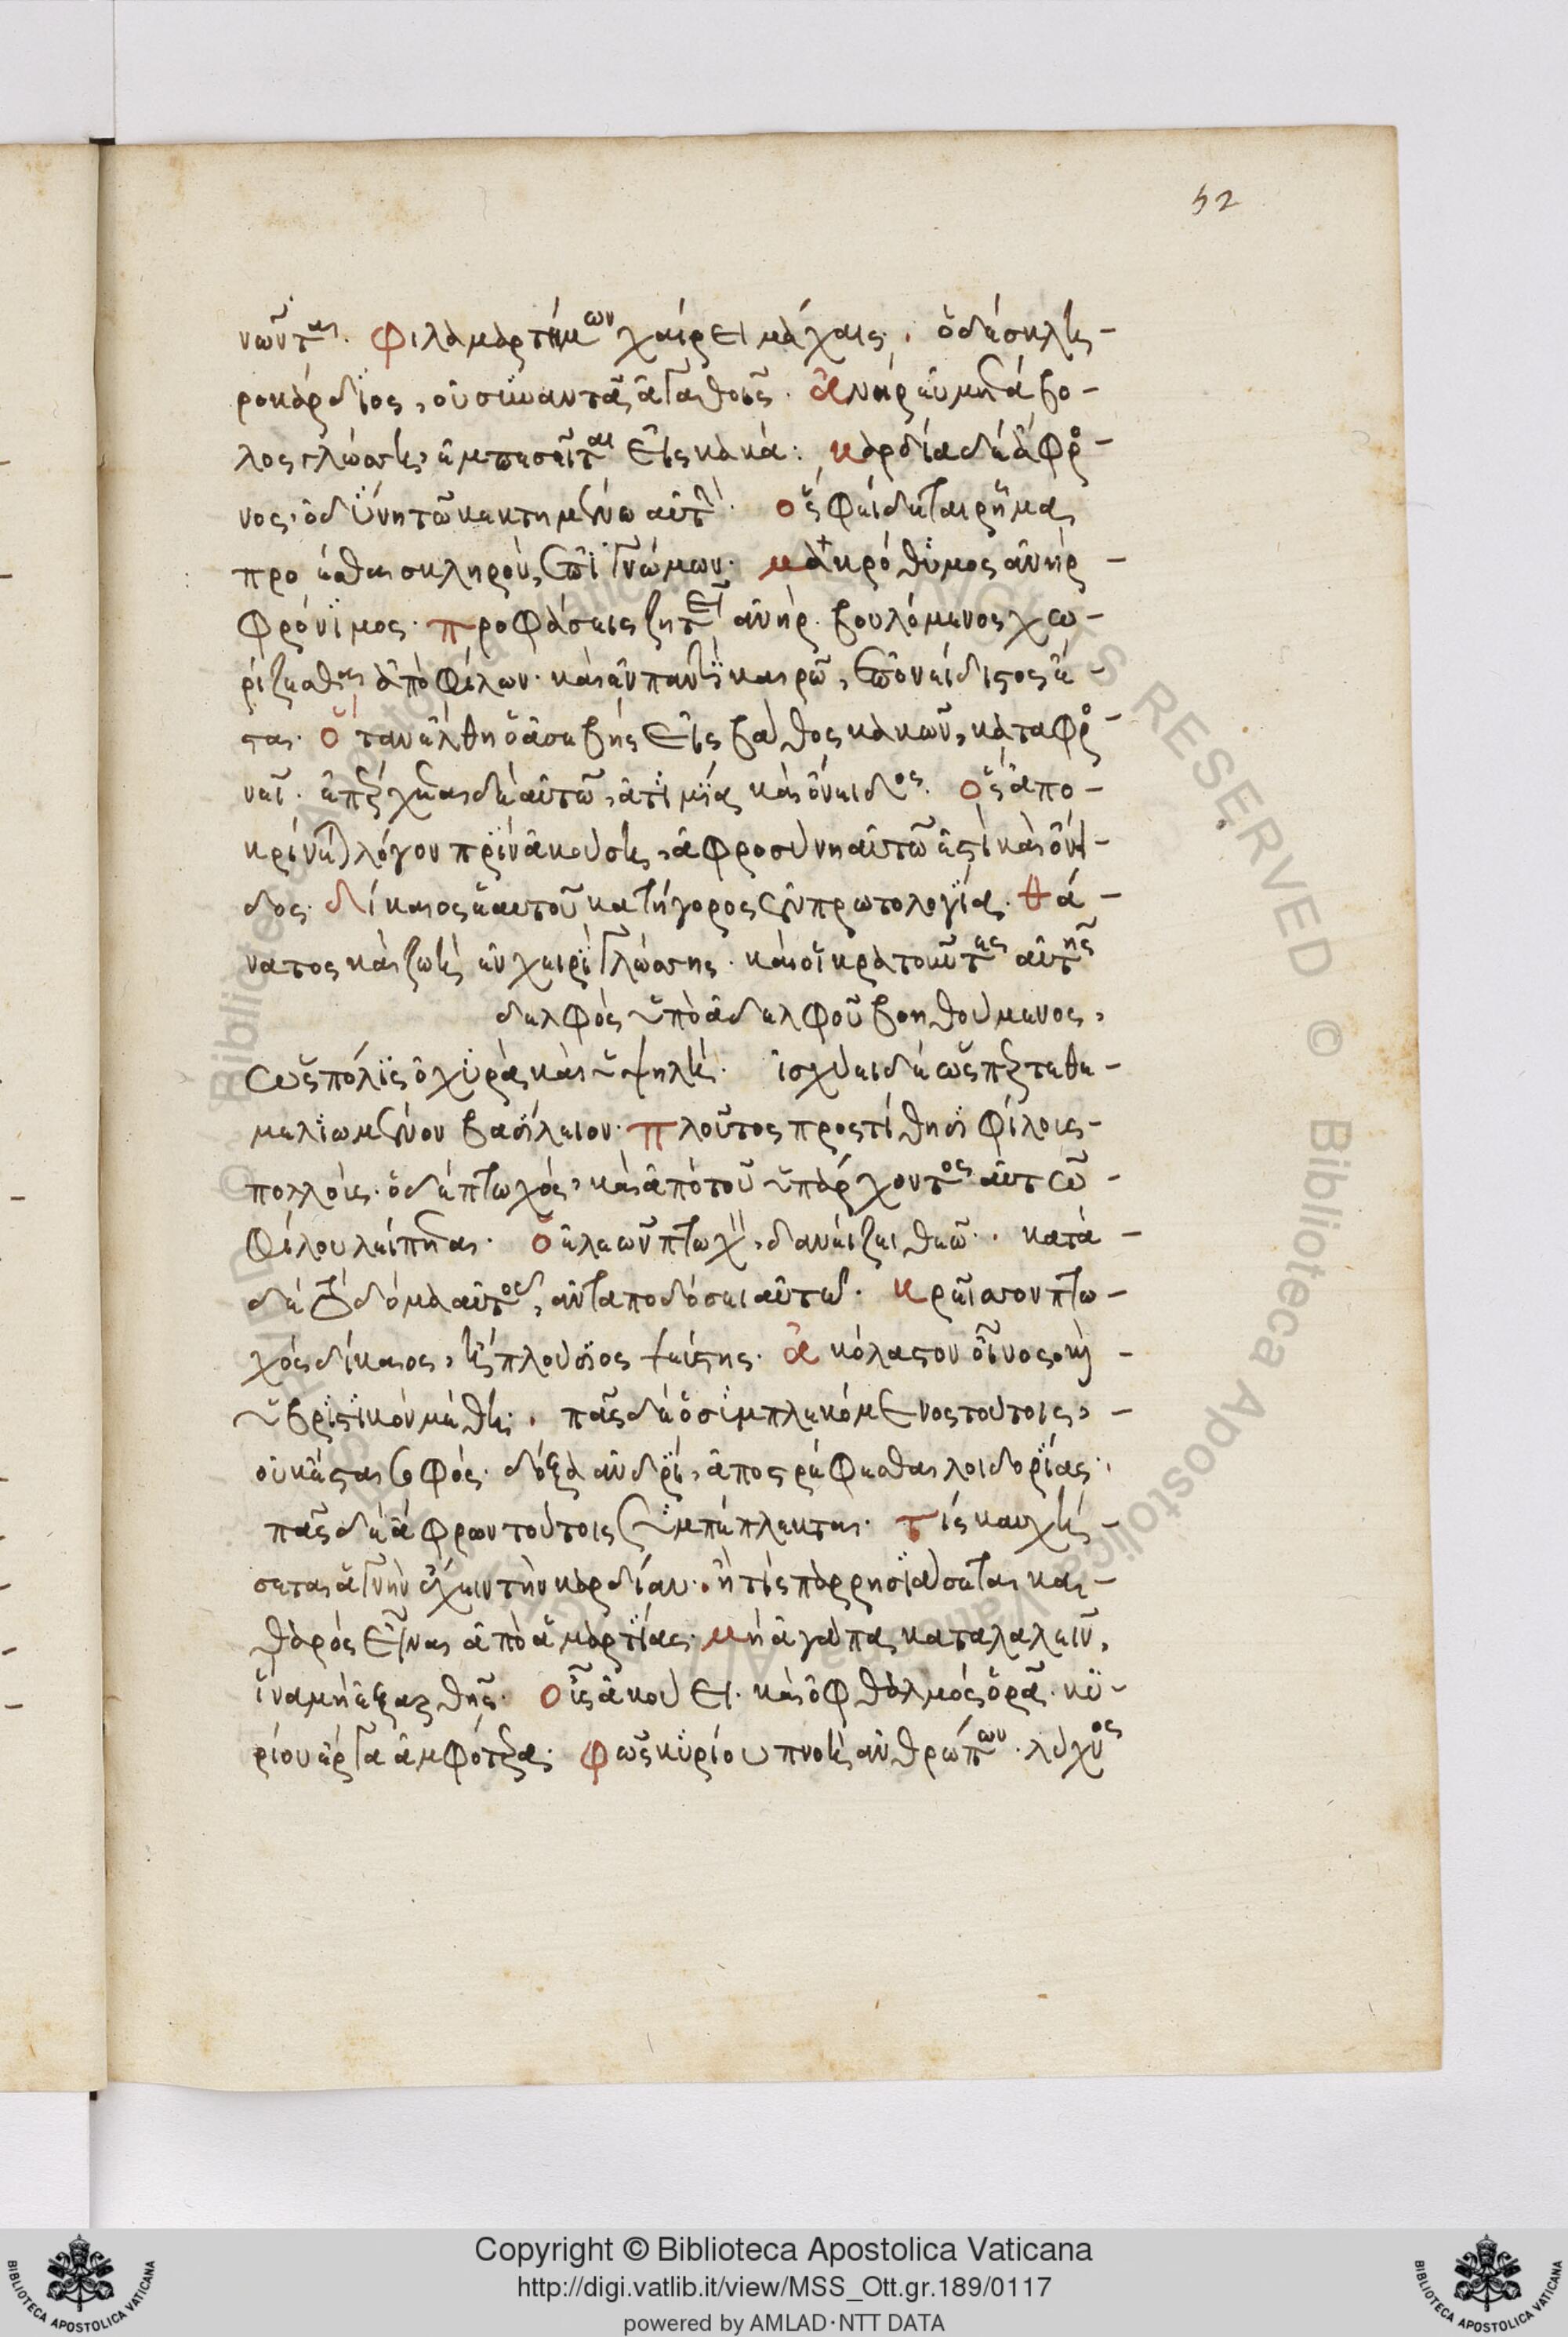 52
νῶνται. Φιλαμαρτήμων χαίρει μάχαις· ὁ δέ σκλη-
ροκάρδιος, οὐ συναντᾶ ἀγαθοῖς. ἀνήρ εὐμετάβο-
λος γλώσση, ἐμπεσεῖται εἰς κακά: καρδία δέ ἄφρο-
νος, ὀδύνη τῶ κεκτημένω αὐτήν. ὅς φείδεται ῥῆμα
προέσθαι σκληρόν, ἐπιγνώμων. μακρόθυμος ἀνήρ
φρόνιμος. προφάσεις ζητεῖ ἀνήρ βουλόμενος χω-
ρίζεσθαι ἀπό φίλων. καί ἐν παντί καιρῶ, ἐπονείδιστος ἔ-
σται. ὅταν ἔλθη ὁ ἀσεβής εἰς βάθος κακῶν, καταφρο-
νεῖ. ἐπέρχεται δέ αὐτῶ, ἀτιμία καί ὄνειδος. ὅς ἀπο-
κρίνεται λόγον πρίν ἀκούση, ἀφροσύνη αὐτῶ ἐστί καί ὄνει-
δος. δίκαιος ἑαυτοῦ κατήγορος ἐν πρωτολογία. θά-
νατος καί ζωή ἐν χειρί γλώσσης. καί οἱ κρατοῦντες αὐτῆς
δελφός ὑπό ἀδελφοῦ βοηθούμενος,
ὡς πόλις ὀχυρά καί ὑψηλή. ἰσχύει δέ ὥσπερ τεθε-
μελιωμένον βασίλειον. πλοῦτος προστίθησι φίλους
πολλούς. ὁ δέ πτωχός, καί ἀπό τοῦ ὑπάρχοντος αὐτῶ
φίλου λείπεται. ὁ ἐλεῶν πτωχόν, δανείζει θεῶ. κατά
δέ τό δόμα αὐτοῦ, ἀνταποδώσει αὐτῶ. κρεῖσσον πτω-
χός δίκαιος, ἤ πλούσιος ψεύστης. ἀκόλαστον οἶνος καί
ὑβριστικόν μέθη. πᾶς δέ ὁ συμπλεκόμενος τούτοις,
οὐκ ἔσται σοφός. δόξα ἀνδρί, ἀποστρέφεσθαι λοιδορίας·
πᾶς δέ ἄφρων τούτοις συμπέπλεκται. τίς καυχή-
σεται ἁγνήν ἔχειν τήν καρδίαν. ἤ τίς παρρησιάσεται κα-
θαρός εἶναι ἀπό ἁμαρτίας. μή ἀγάπα καταλαλεῖν,
ἵνα μή ἐξαρθῆς. οὖς ἀκούει. καί ὀφθαλμός ὁρᾶ. κυ-
ρίου ἔργα ἀμφότερα. φῶς κυρίου πνοή ἀνθρώπων. λύχνος
Copyright © Biblioteca Apostolica Vaticana
http://digi.vatlib.it/view/MSS_Ott.gr.189/0117
powered by AMLAD·NTT DATA